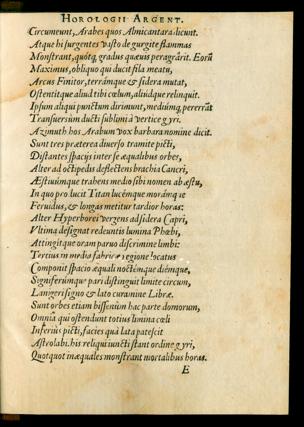 HOROLOGII ARGENT.
Circumeunt, Arabes quos Almicantara dicunt.
Atque hi surgentes vasto de gurgite flammas
Monstrant, quotq; gradus quæuis peragrârit. Eorũ
Maximus, obliquo qui ducit fila meatu,
Arcus Finitor, terrámque & sidera mutat,
Ostentitque aliud tibi cœlum, aliúdque relinquit.
Ipsum aliqui punctum dirimunt, mediúmq; pererrãt
Transuersim ducti sublimi à vertice gyri.
Azimuth hos Arabum vox barbara nomine dicit.
Sunt tres præterea diuerso tramite picti,
Distantes spacijs inter se æqualibus orbes,
Alter ad octipedis deflectens brachia Cancri,
Æstiuúmque trahens medio sibi nomen ab æstu,
In quo pro lucit Titan lucémque morámq́ue
Feruidus, & longas metitur tardior horas:
Alter Hyperborei vergens ad sidera Capri,
Vltima designat redeuntis lumina Phœbi,
Attingitque oram paruo discrimine limbi:
Tertius in media fabricæ regione locatus
Componit spacio æquali noctémque diémque,
Signiferúmque pari distinguit limite circum,
Lanigeri signo & lato curamine Libræ.
Sunt orbes etiam bissenûm hac parte domorum,
Omnia qui ostendunt totius limina cœli
Inferiùs picti, facies quà lata patescit
Astrolabi. his reliqui iuncti stant ordine gyri,
Quotquot inæquales monstrant mortalibus horas.
E